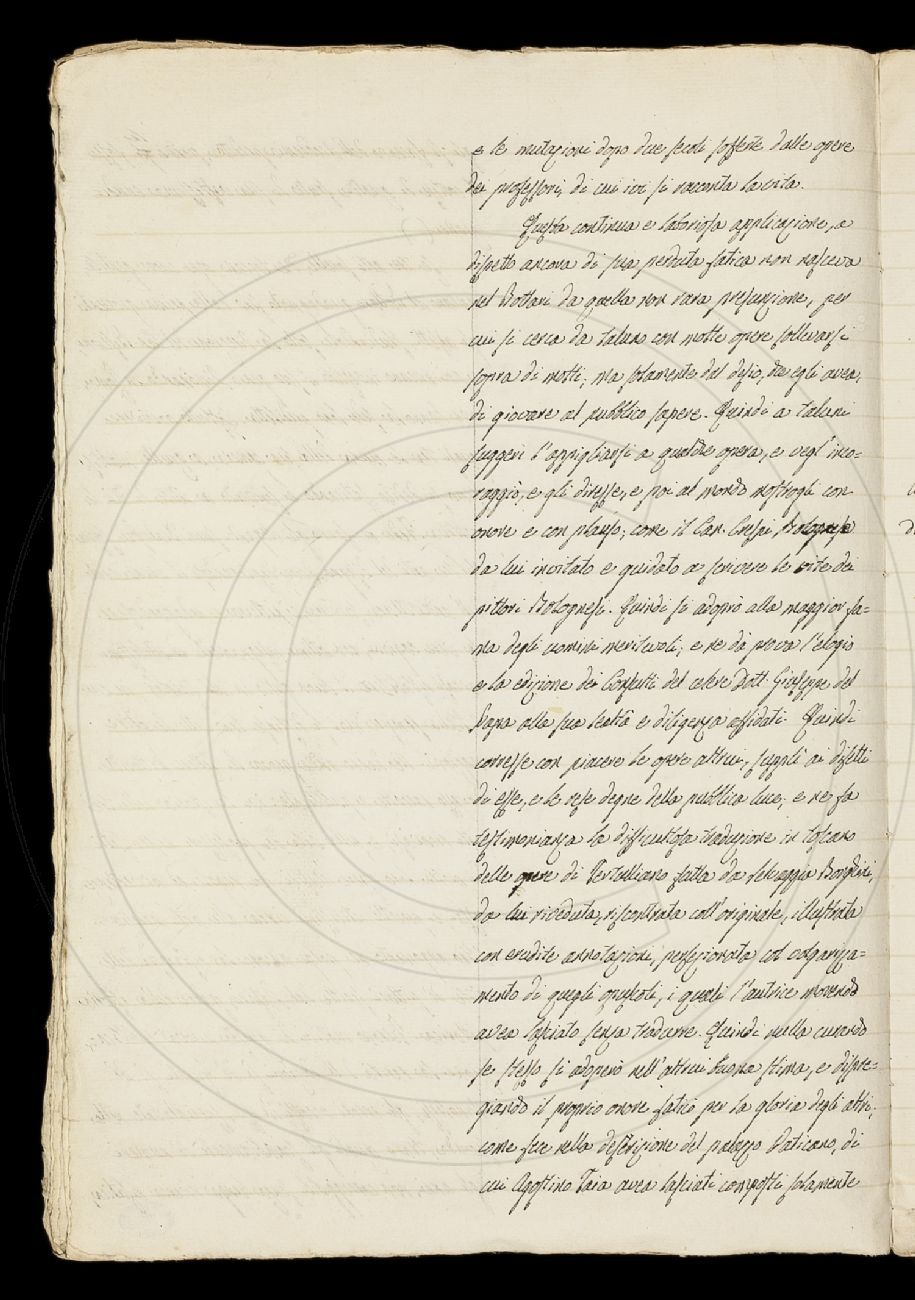 e le mutazioni dopo due secoli sofferte dalle opere
dei professori, di cui ivi si racconta la vita.
Questa continua e laboriosa applicazione, a
dispetto ancora di sua perduta fatica non nasceva
nel Bottari da quella non rara presunzione, per
cui si cerca da taluno con molte opere sollevarsi
sopra di molti; ma solamente dal desio, che egli avea,
di giovare al pubblico sapere. Quindi a taluni
suggerì l'appigliarsi a qualche opera, e vegl' inco-
raggiò, e gli diresse, e poi al mondo mostrogli con
onore e con plauso; come il Can. Crespi Bolognese
da lui invitato e guidato a scrivere le vite dei
pittori Bolognesi. Quindi si adoprò alla maggior fa-
ma degli uomini meritevoli; e ne dà prova l'elogio
e la edizione dei Consulti del celere Dott. Giuseppe del
Papa alla sua lealtà e diligenza affidati. Quindi
corresse con piacere le opere altrui, supplì ai difetti
di esse, e le rese degne della pubblica luce; e ne fa
testimonianza la difficultosa traduzione in toscano
delle opere di Tertulliano fatta da Selvaggia Borghini,
da lui riveduta, riscontrata coll'originale, illustrata
con erudite annotazioni, perfezionata col volgarizza-
mento di quegli opuscoli, i quali l'autrice morendo
avea lasciato senza tradurre. Quindi nulla curando
se stesso si adoperò nell'altrui buona stima, e dispre-
giando il proprio onore faticò per la gloria degli altri;
come fece nella descrizione del palazzo Vaticano, di
cui Agostino Taia avea lasciati composti solamente